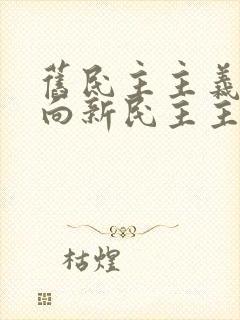 舊民主主義
向新民主主
枯煌